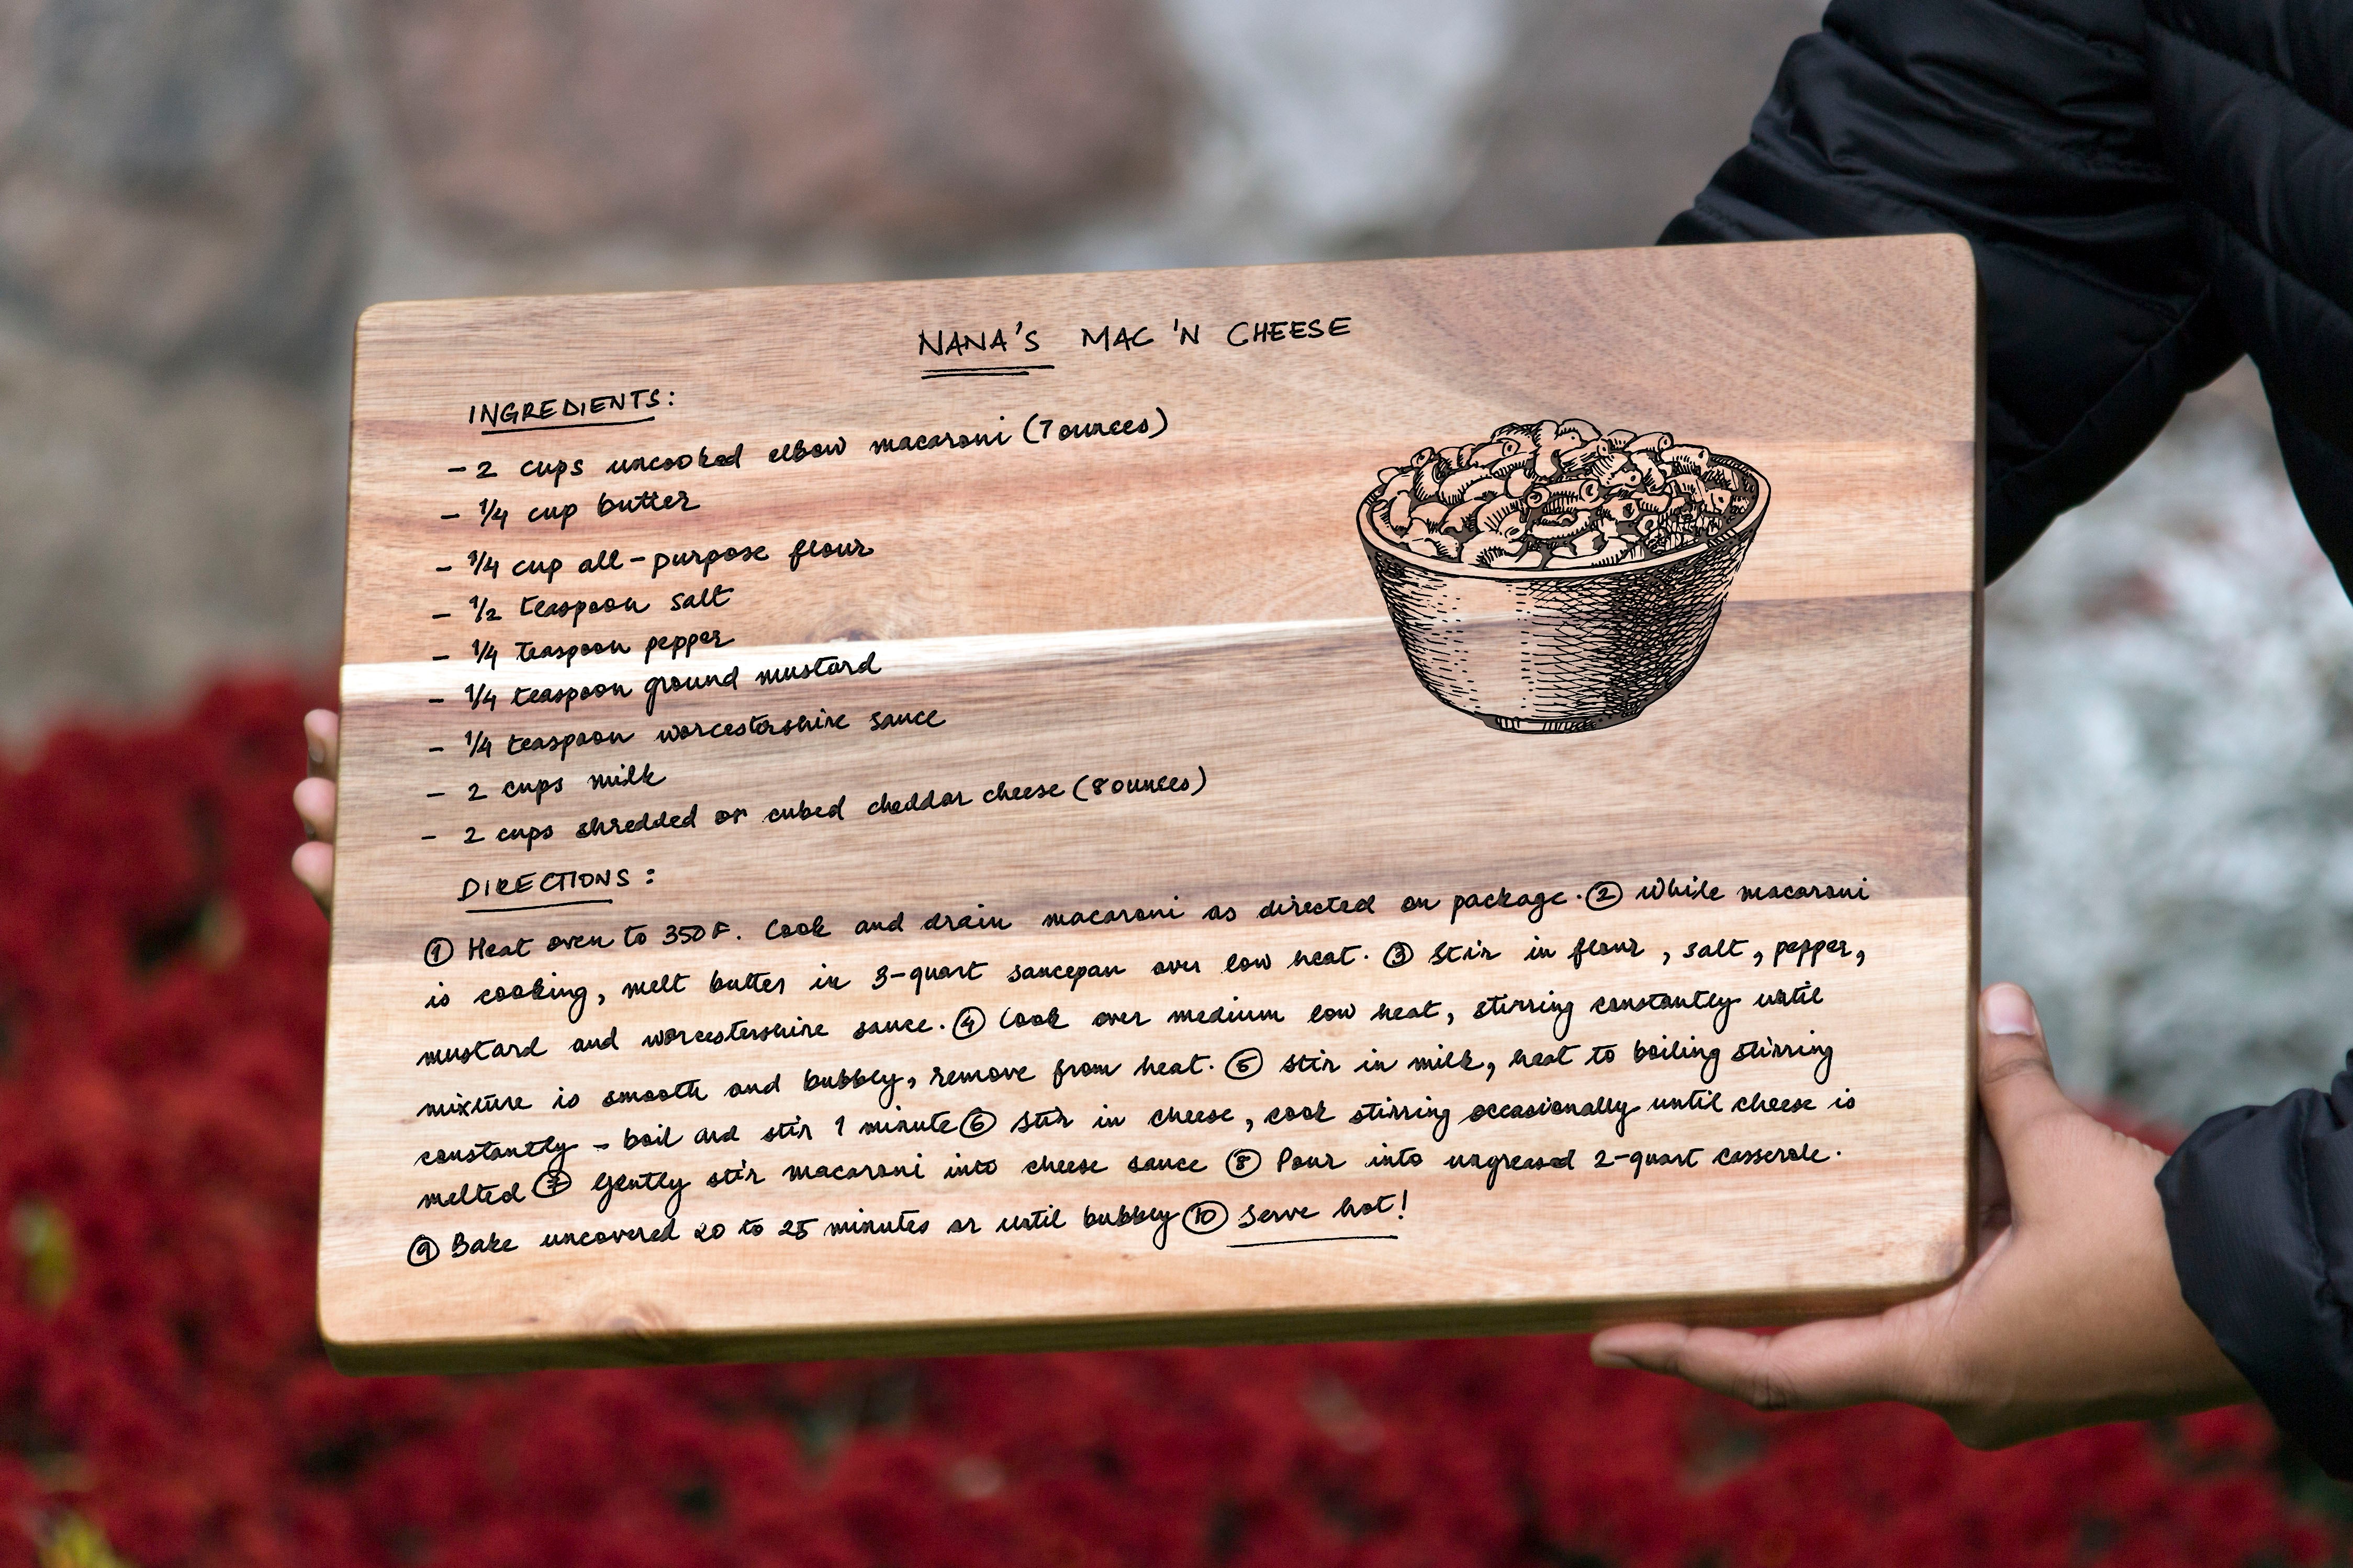 NANA'S MAC 'N CHEESE
INGREDIENTS:
- 2 cups uncooked elbow macaroni (7 ounces)
- 1/4 cup butter
- 1/4 cup all-purpose flour
- 1/2 teaspoon salt
- 1/4 teaspoon pepper
- 1/4 teaspoon ground mustard
- 1/4 teaspoon worcestershire sauce
- 2 cups milk
- 2 cups shredded or cubed cheddar cheese (8 ounces)
DIRECTIONS:
① Heat oven to 350 F. Cook and drain macaroni as directed on package. ② While macaroni
is cooking, melt butter in 3-quart saucepan over low heat. ③ Stir in flour, salt, pepper,
mustard and worcestershire sauce. ④ Cook over medium low heat, stirring constantly until
mixture is smooth and bubbly, remove from heat. ⑤ Stir in milk, heat to boiling stirring
constantly - boil and stir 1 minute ⑥ Stir in cheese, cook stirring occasionally until cheese is
melted ⑦ Gently stir macaroni into cheese sauce ⑧ Pour into ungreased 2-quart casserole.
⑨ Bake uncovered 20 to 25 minutes or until bubbly ⑩ Serve hot!